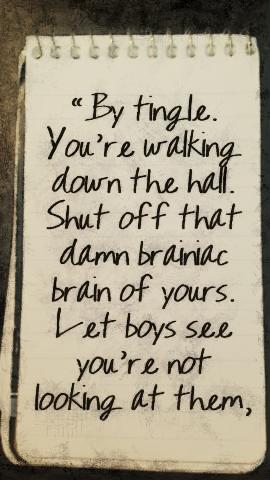 “By tingle.
You're walking
down the hall.
Shut off that
damn brainiac
brain of yours.
Let boys see
you're not
looking at them,